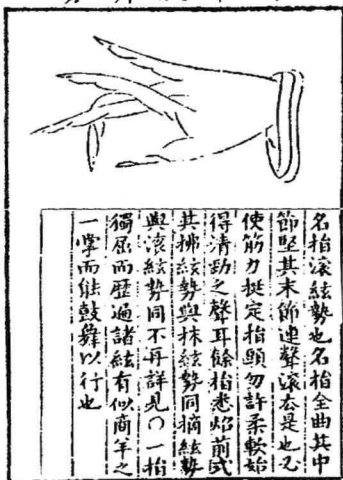 名指滚絃勢也名指全曲其中
節堅其末節連聲滚去是也又
使筋力挺定指頭勿許柔軟始
得清勁之聲耳餘指悉如前式
其拂絃勢與抹絃勢同摘絃勢
與滚絃勢同不再詳見〇一指
獨屈而歷過諸絃有似商羊之
一學而能鼓舞以行也